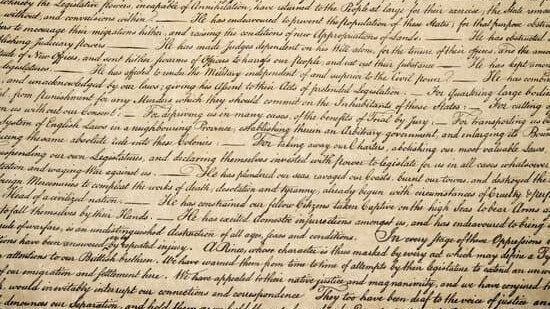 whereby the Legislative powers, incapable of Annihilation, have returned to the People at large for their exercise; the State remain
without, and convulsions within. — He has endeavoured to prevent the population of these States; for that purpose obstruc
to encourage their migrations hither, and raising the conditions of new Appropriations of Lands. — He has obstructed
blishing Judiciary powers. — He has made Judges dependent on his Will alone, for the tenure of their offices, and the amou
tude of New Offices, and sent hither swarms of Officers to harrass our people, and eat out their substance. — He has kept among
legislatures. — He has affected to render the Military independent of and superior to the Civil power. — He has combin
, and unacknowledged by our laws; giving his Assent to their Acts of pretended Legislation: — For Quartering large bodies
al, from punishment for any Murders which they should commit on the Inhabitants of these States: — For cutting
on us without our Consent: — For depriving us in many cases, of the benefits of Trial by Jury: — For transporting us be
System of English Laws in a neighbouring Province, establishing therein an Arbitrary government, and enlarging its Boun
ducing the same absolute rule into these Colonies: — For taking away our Charters, abolishing our most valuable Laws
spending our own Legislatures, and declaring themselves invested with power to legislate for us in all cases whatsoever.
ection and waging War against us. — He has plundered our seas, ravaged our Coasts, burnt our towns, and destroyed the
Mercenaries to compleat the works of death, desolation and tyranny, already begun with circumstances of Cruelty & perf
Head of a civilized nation. — He has constrained our fellow Citizens taken Captive on the high Seas to bear Arms a
to fall themselves by their Hands. — He has excited domestic insurrections amongst us, and has endeavoured to bring
rule of warfare, is an undistinguished destruction of all ages, sexes and conditions. In every stage of these Oppressions
tions have been answered by repeated injury. A Prince, whose character is thus marked by every act which may define a Ty
n attentions to our Brittish brethren. We have warned them from time to time of attempts by their legislature to extend an unwa
of our emigration and settlement here. We have appealed to their native justice and magnanimity, and we have conjured
h, would inevitably interrupt our connections and correspondence. They too have been deaf to the voice of justice an
denounces our Separation, and hold them, as we hold the